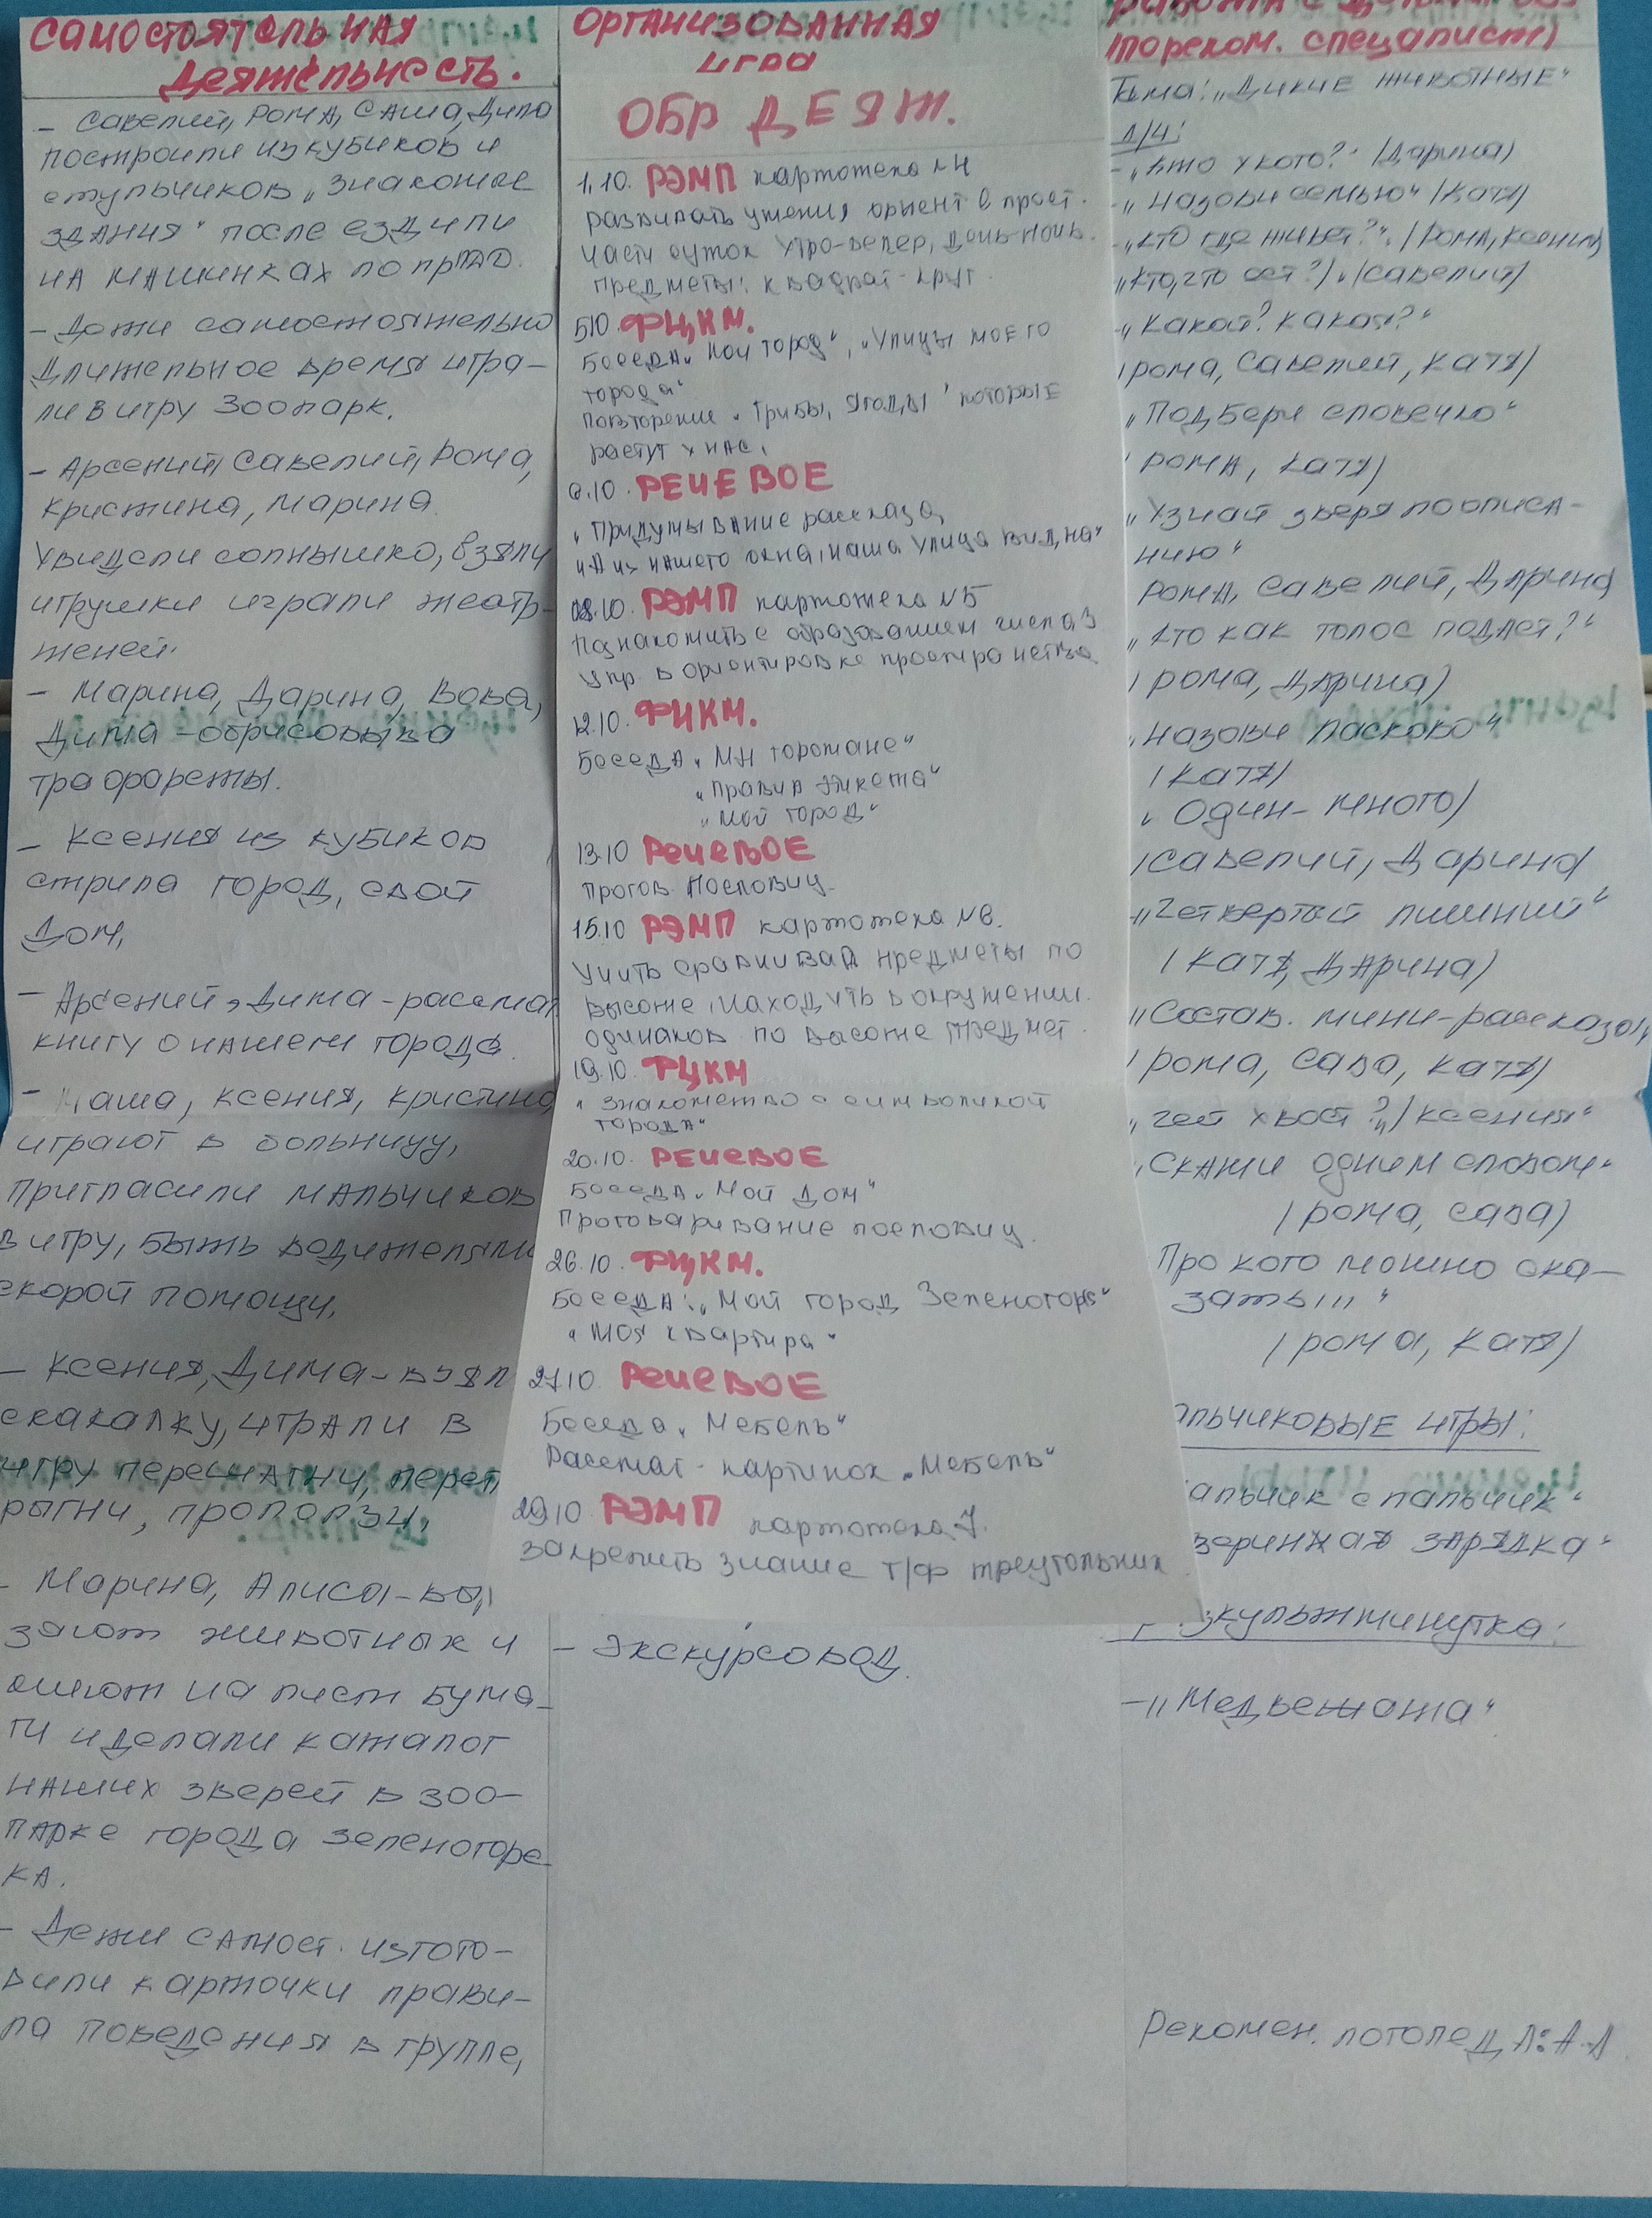 САМОСТОЯТЕЛЬНАЯ
ДЕЯТЕЛЬНОСТЬ.
- Савелий, РОМА, САША, Дима
построили из кубиков и
стульчиков „Знакомые
ЗДАНИЯ" после ездили
НА МАШИНКАХ по ПДД.
- Дети самостоятельно
длительное время игра-
ли в игру Зоопарк.
- Арсений, Савелий, Рома,
Кристина, Марина.
Увидели солнышко, взяли
игрушки играли театр
теней.
- Марина, Дарина, Вова,
Дима - обрисовыва
трафареты.
- Ксения из кубиков
стрила город, свой
дом,
- Арсений, Дима - рассмат
книгу о нашем городе.
- Маша, Ксения, Кристина
играют в больницу,
пригласили мальчиков
в игру, быть водителями
скорой помощи,
- Ксения, Дима - взял
скакалку, играли в
игру перешагни, переп
рыгни, проползи,
- Марина, Алиса - вы
зают животных и
на лист бума-
ги и делали каталог
наших зверей в зоо-
парке города Зеленогорс
КА.
- Дети самост. изгото-
вили карточки прави-
ла поведения в группе,
ОРГАНИЗОВАННАЯ
ИГРА
ОБР ДЕЯТ.
1.10. РЭМП картотека №4
развивать умения ориент в прост.
части суток утро-вечер, день-ночь.
предметы: квадрат-круг.
5.10. ФЦКМ.
Беседа „Мой город", „Улицы моего
города"
Повторение „Грибы, ягоды" которые
растут у нас.
6.10. РЕЧЕВОЕ
„Придумывание рассказа,
„А из нашего окна, наша улица видна"
08.10. РЭМП картотека №5
Познакомить с образованием числа 3
Упр. в ориентировке пространства
12.10. ФЦКМ.
Беседа „МЫ горожане"
„Правила этикета"
„Мой город"
13.10 РЕЧЕВОЕ
Прогов. Пословиц.
15.10 РЭМП картотека №6.
Учить сравнивая предметы по
высоте, находить в окружении
одинаков. по высоте предмет.
19.10. ФЦКМ
„Знакомство с символикой
города"
20.10. РЕЧЕВОЕ
Беседа „Мой дом"
Проговаривание пословиц.
26.10. ФЦКМ.
Беседа: „Мой город Зеленогорск"
„Моя квартира"
27.10 РЕЧЕВОЕ
Беседа „Мебель"
Рассмат. картинок „Мебель"
29.10 РЭМП картотека 7.
Закрепить знание г/ф треугольник
- Экскурсовод.
/по реком. специалист/
Тема: „Дикие животные"
Д/И:
- „Кто у кого?" /Дарина/
- „Назови семью" /Катя/
- „Кто где живет?" /Рома, Ксения/
„Кто, что ест?" /Савелий/
„Какой? Какая?"
/Рома, Савелий, Катя/
„Подбери словечко"
/Рома, Катя/
„Узнай зверя по описа-
нию"
Рома, Савелий, Дарина
„Кто как голос подает?"
/Рома, Дарина/
„Назови ласково"
/Катя/
„Один - много/
/Савелий, Дарина/
„Четвертый лишний"
/Катя, Дарина/
„Состав. мини-рассказы,
/Рома, Сава, Катя/
„Чей хвост?" /Ксения"
„Скажи одним словом"
/Рома, Сава/
Про кого можно ска-
зать..."
/Рома, Катя/
альчиковые игры:
альчик с пальчик"
Звериная зарядка"
Физкультминутка:
- „Медвежата"
Рекомен. логопед Л.А.А.